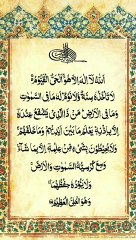 اللهُ لَا إِلٰهَ إِلَّا هُوَ الْحَيُّ الْقَيُّومُ
لَا تَأْخُذُهُ سِنَةٌ وَلَا نَوْمٌ لَهُ مَا فِي السَّمٰوٰتِ
وَمَا فِي الْأَرْضِ مَنْ ذَا الَّذِي يَشْفَعُ عِنْدَهُ
إِلَّا بِإِذْنِهِ يَعْلَمُ مَا بَيْنَ أَيْدِيهِمْ وَمَا خَلْفَهُمْ
وَلَا يُحِيطُونَ بِشَيْءٍ مِنْ عِلْمِهِ إِلَّا بِمَا شَاءَ
وَسِعَ كُرْسِيُّهُ السَّمٰوٰتِ وَالْأَرْضَ
وَلَا يَئُودُهُ حِفْظُهُمَا
وَهُوَ الْعَلِيُّ الْعَظِيمُ